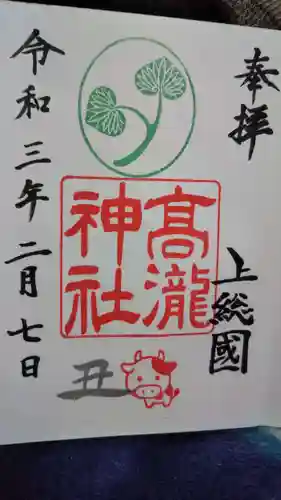 奉拝
上総國
高瀧
神社
丑
令和三年二月七日